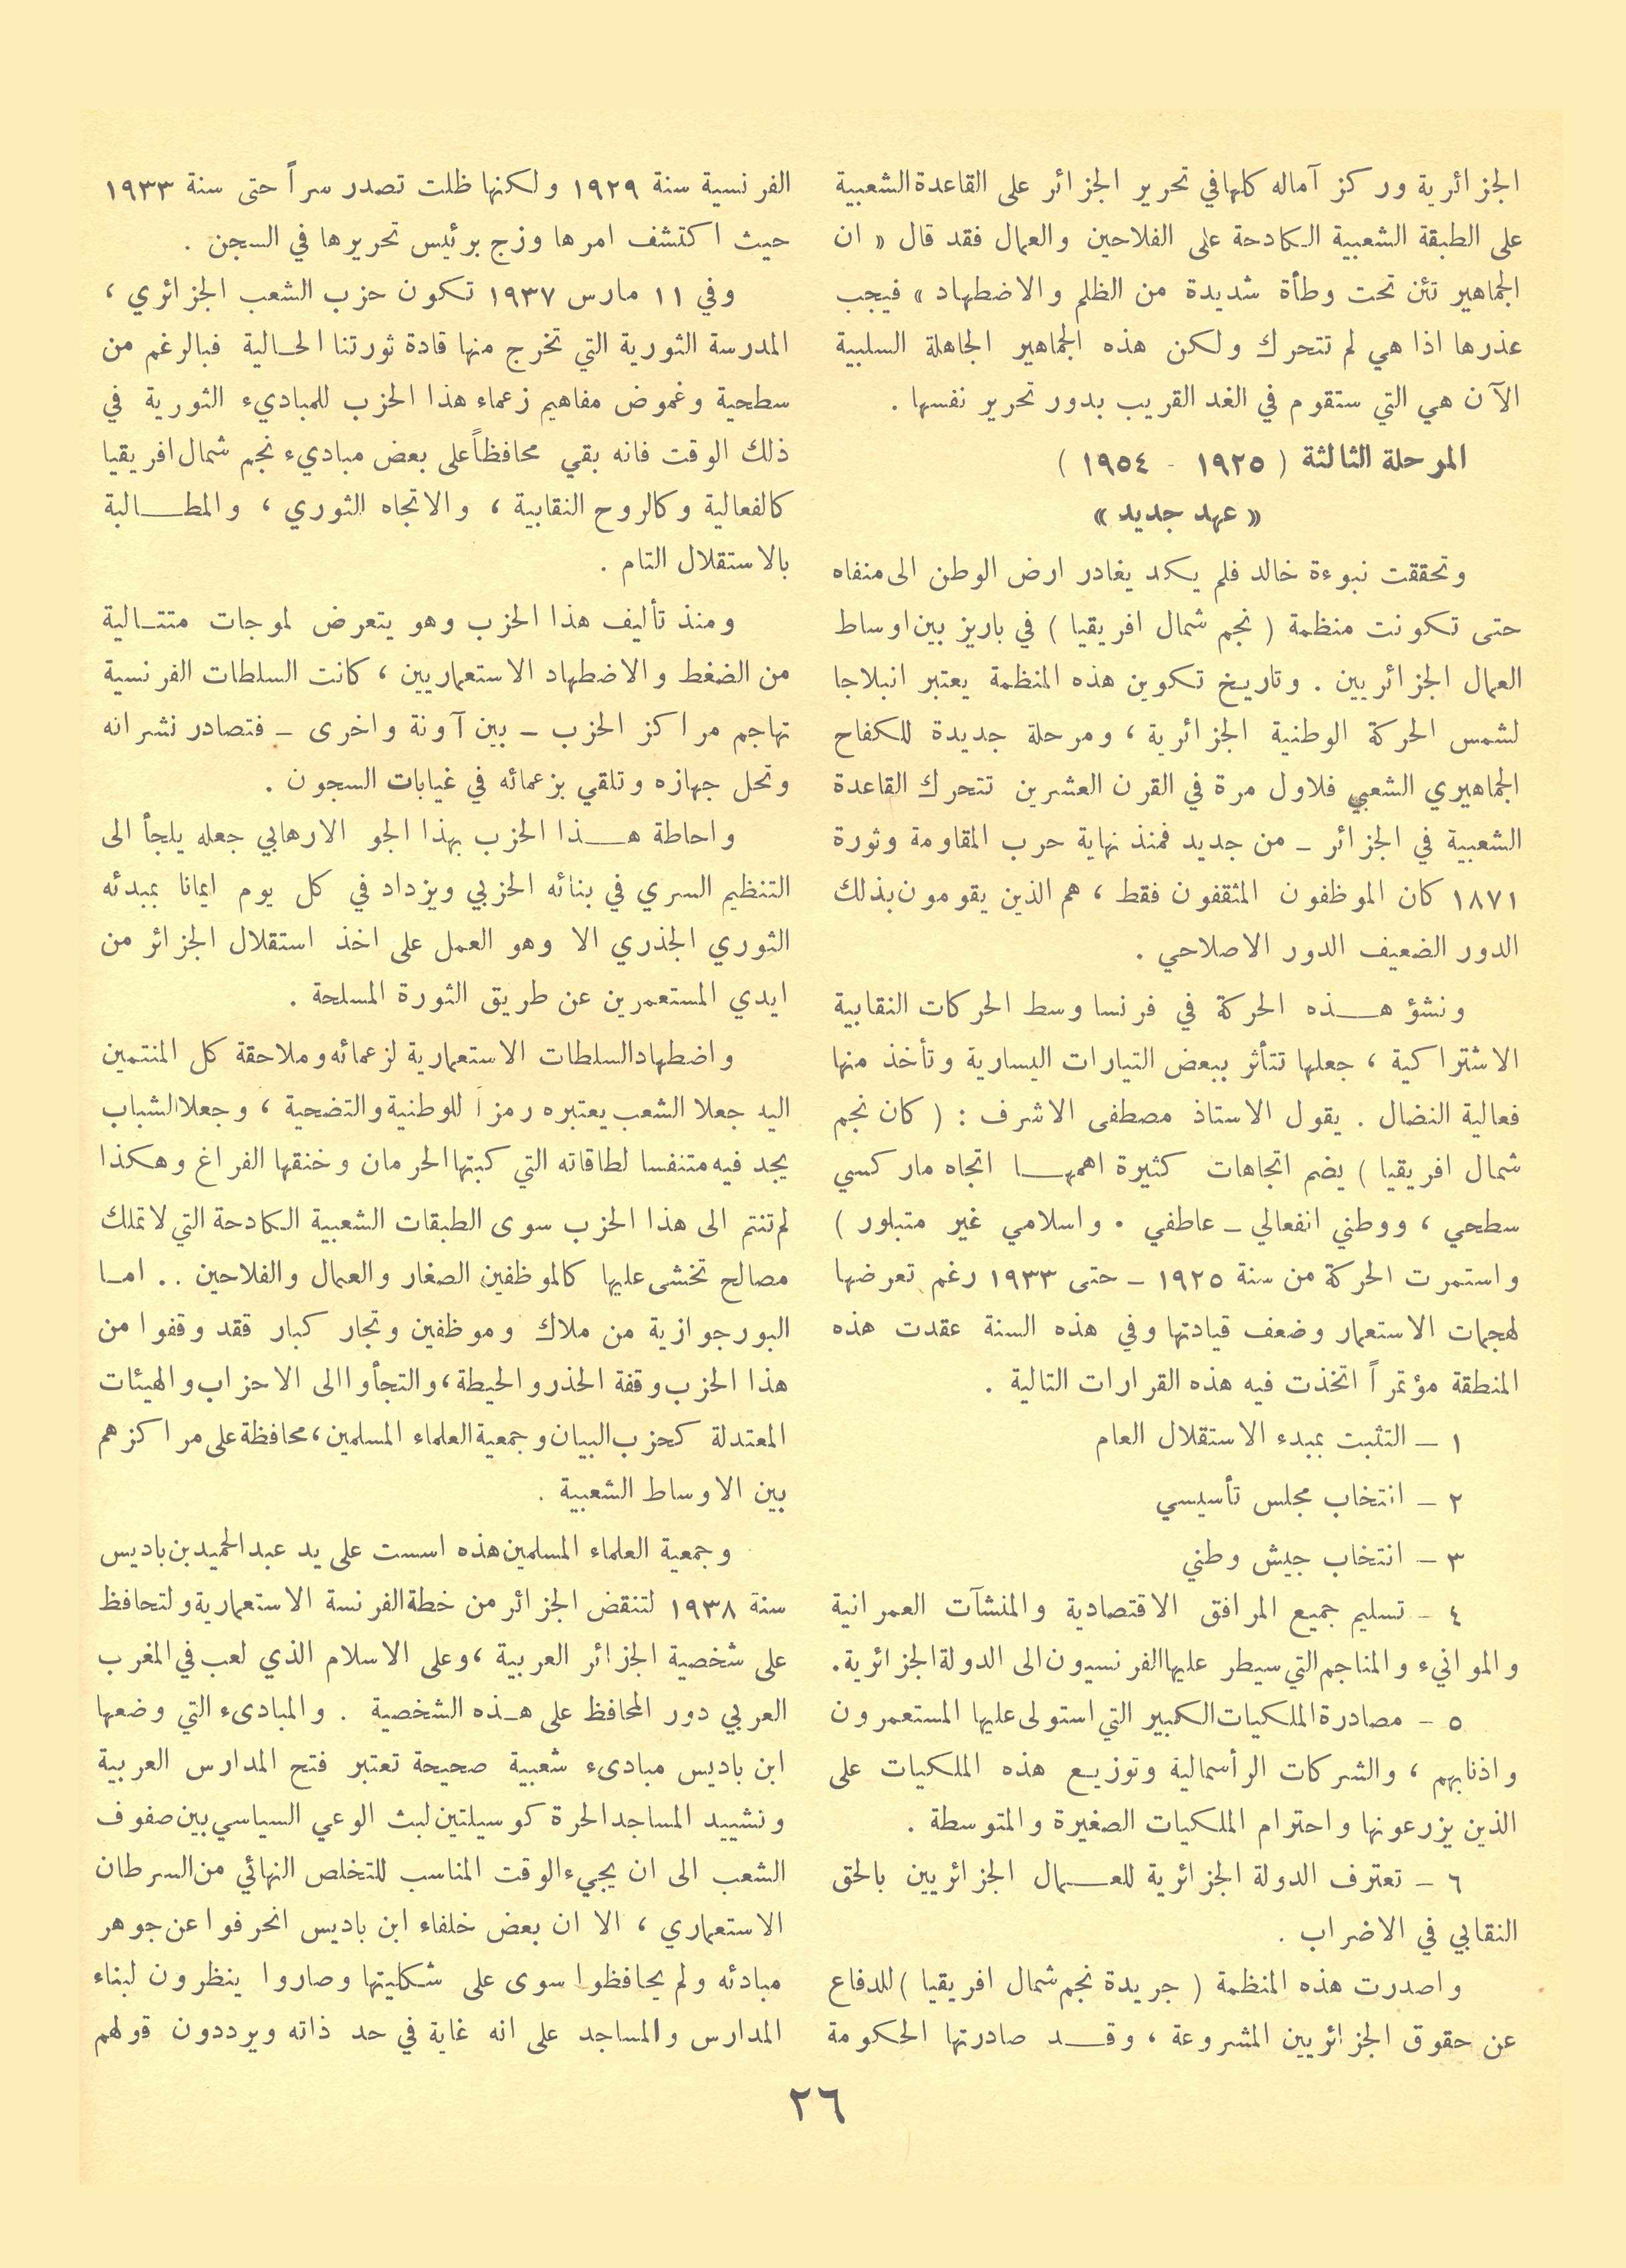 الجزائرية وركز آماله كلها في تحرير الجزائر على القاعدة الشعبية
على الطبقة الشعبية الكادحة على الفلاحين والعمال فقد قال « ان
الجماهير تئن تحت وطأة شديدة من الظلم والاضطهاد » فيجب
عذرها اذا هي لم تتحرك ولكن هذه الجماهير الجاهلة السلبية
الآن هي التي ستقوم في الغد القريب بدور تحرير نفسها .
المرحلة الثالثة ( ١٩٢٥ - ١٩٥٤ )
« عهد جديد »
وتحققت نبوءة خالد فلم يكد يغادر ارض الوطن الى منفاه
حتى تكونت منظمة ( نجم شمال افريقيا ) في باريز بين اوساط
العمال الجزائريين . وتاريخ تكوين هذه المنظمة يعتبر انبلاجا
لشمس الحركة الوطنية الجزائرية ، ومرحلة جديدة للكفاح
الجماهيري الشعبي فلاول مرة في القرن العشرين تتحرك القاعدة
الشعبية في الجزائر – من جديد فمنذ نهاية حرب المقاومة وثورة
١٨٧١ كان الموظفون المثقفون فقط ، هم الذين يقومون بذلك
الدور الضعيف الدور الاصلاحي .
ونشؤ هـذه الحركة في فرنسا وسط الحركات النقابية
الاشتراكية ، جعلها تتأثر ببعض التيارات اليسارية وتأخذ منها
فعالية النضال . يقول الاستاذ مصطفى الاشرف : ( كان نجم
شمال افريقيا ) يضم اتجاهات كثيرة اهمهـا اتجاه ماركسي
سطحي ، ووطني انفعالي – عاطفي . واسلامي غير متبلور )
واستمرت الحركة من سنة ١٩٢٥ – حتى ١٩٣٣ رغم تعرضها
لهجمات الاستعمار وضعف قيادتها وفي هذه السنة عقدت هذه
المنطقة مؤتمراً اتخذت فيه هذه القرارات التالية .
١ – التثبت بمبدء الاستقلال العام
٢ – انتخاب مجلس تأسيسي
٣ – انتخاب جيش وطني
٤ – تسليم جميع المرافق الاقتصادية والمنشآت العمرانية
والموانيء والمناجم التي سيطر عليها الفرنسيون الى الدولة الجزائرية.
٥ – مصادرة الملكيات الكمبير التي استولى عليها المستعمرون
واذنابهم ، والشركات الرأسمالية وتوزيع هذه الملكيات على
الذين يزرعونها واحترام الملكيات الصغيرة والمتوسطة .
٦ – تعترف الدولة الجزائرية للعـمال الجزائريين بالحق
النقابي في الاضراب .
واصدرت هذه المنظمة ( جريدة نجم شمال افريقيا ) للدفاع
عن حقوق الجزائريين المشروعة ، وقـد صادرتها الحكومة
الفرنسية سنة ١٩٢٩ ولكنها ظلت تصدر سراً حتى سنة ١٩٣٣
حيث اكتشف امرها وزج برئيس تحريرها في السجن .
وفي ١١ مارس ١٩٣٧ تكون حزب الشعب الجزائري ،
المدرسة الثورية التي تخرج منها قادة ثورتنا الحـالية فبالرغم من
سطحية وغموض مفاهيم زعماء هذا الحزب للمباديء الثورية في
ذلك الوقت فانه بقي محافظاً على بعض مباديء نجم شمال افريقيا
كالفعالية وكالروح النقابية ، والاتجاه الثوري ، والمطـالبة
بالاستقلال التام .
ومنذ تأليف هذا الحزب وهو يتعرض لموجات متتـالية
من الضغط والاضطهاد الاستعماريين ، كانت السلطات الفرنسية
تهاجم مراكز الحزب – بين آونة واخرى – فتصادر نشراته
وتحل جهازه وتلقي بزعمائه في غيابات السجون .
واحاطة هـذا الحزب بهذا الجو الارهابي جعله يلجأ الى
التنظيم السري في بنائه الحزبي ويزداد في كل يوم ايمانا بمبدئه
الثوري الجذري الا وهو العمل على اخذ استقلال الجزائر من
ايدي المستعمرين عن طريق الثورة المسلحة .
واضطهاد السلطات الاستعمارية لزعمائه وملاحقة كل المنتمين
اليه جعلا الشعب يعتبره رمزاً للوطنية والتضحية ، وجعلا الشباب
يجد فيه متنفسا لطاقاته التي كبتها الحرمان وخنقها الفراغ وهكذا
لم تنتم الى هذا الحزب سوى الطبقات الشعبية الكادحة التي لا تملك
مصالح تخشى عليها كالموظفين الصغار والعمال والفلاحين .. امـا
البورجوازية من ملاك وموظفين وتجار كبار فقد وقفوا من
هذا الحزب وقفة الحذر والحيطة ، والتجأوا الى الاحزاب والهيئات
المعتدلة كحزب البيان وجمعية العلماء المسلمين ، محافظة على مراكزهم
بين الاوساط الشعبية .
وجمعية العلماء المسلمين هذه اسست على يد عبد الحميد بن باديس
سنة ١٩٣٨ لتنقض الجزائر من خطة الفرنسة الاستعمارية ولتحافظ
على شخصية الجزائر العربية ، وعلى الاسلام الذي لعب في المغرب
العربي دور المحافظ على هـذه الشخصية . والمبادىء التي وضعها
ابن باديس مبادىء شعبية صحيحة تعتبر فتح المدارس العربية
ونشييد المساجد الحرة كوسيلتين لبث الوعي السياسي بين صفوف
الشعب الى ان يجيء الوقت المناسب للتخلص النهائي من السرطان
الاستعماري ، الا ان بعض خلفاء ابن باديس انحرفوا عن جوهر
مبادئه ولم يحافظوا سوى على شكليتها وصاروا ينظرون لبناء
المدارس والمساجد على انه غاية في حد ذاته ويرددون قولهم
٢٦